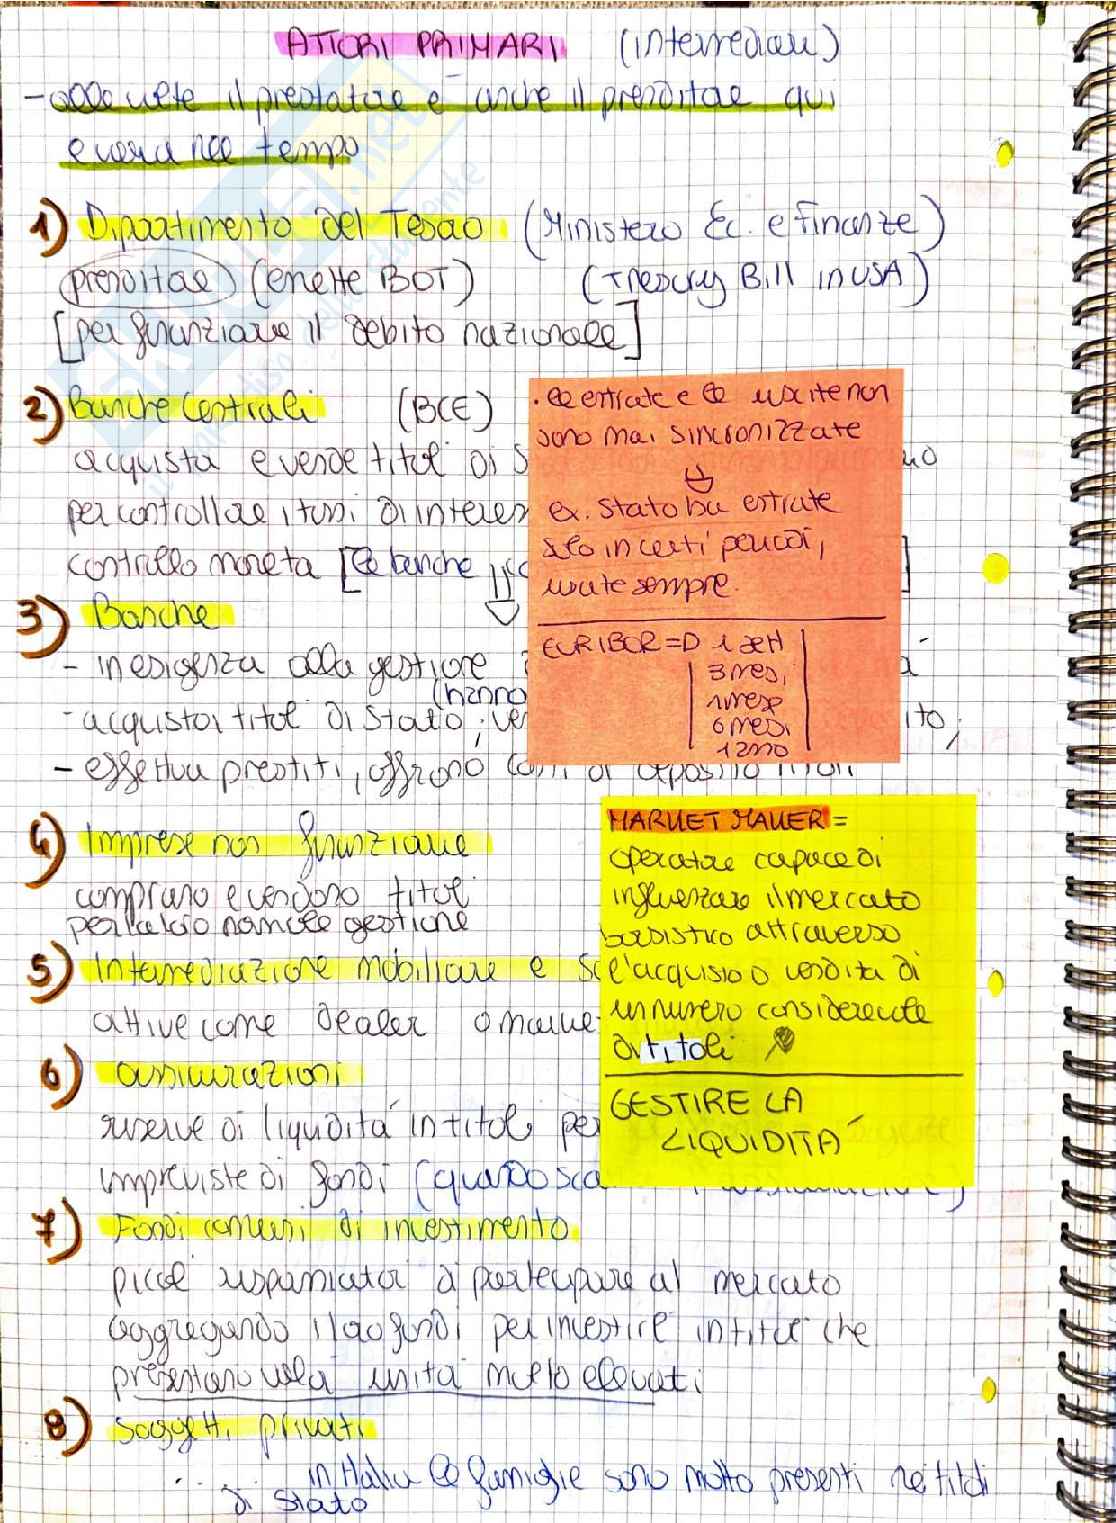 ATTORI PRIMARI (intermediari)
- alle volte il prestatore è anche il prenditore qui
e varia nel tempo
1) Dipartimento del Tesoro (Ministero Ec. e Finanze)
prenditore (emette BOT) (Treasury Bill in USA)
[per finanziare il debito nazionale]
2) Banche Centrali (BCE)
acquista e vende titoli di S
per controllare i tassi di interes
controllo moneta [le banche
3) Banche
- in esigenza alla gestione
(hanno
- acquistai titoli di Stato; ve ito;
- effettua prestiti, offrono conti di deposito titoli
• le entrate e le uscite non
sono mai sincronizzate
ex. Stato ha entrate
solo in certi periodi,
uscite sempre.
EURIBOR => 1 sett
3 mesi
1 mese
6 mesi
1 anno
4) Imprese non finanziarie
comprano e vendono titoli
per la loro normale gestione
5) Intermediazione mobiliare e s
attive come dealer o marke
6) assicurazioni
riserve di liquidità in titoli per
impreviste di fondi (quando sca
MARKET MAKER =
operatore capace di
influenzare il mercato
borsistico attraverso
l'acquisto o vendita di
un numero considerevole
di titoli
GESTIRE LA
LIQUIDITÀ
7) Fondi comuni di investimento
piccoli risparmiatori di partecipare al mercato
aggregando i loro fondi per investire in titoli che
presentano valori unità molto elevati
8) Soggetti privati
... in Italia le famiglie sono molto presenti nei titoli
di stato